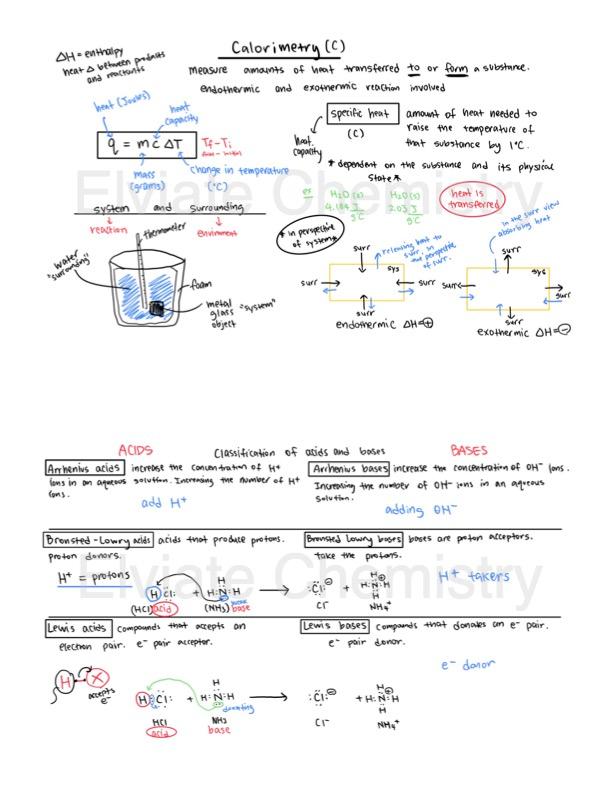 Calorimetry (C)
ΔH = enthalpy
heat Δ between products
and reactants
measure amounts of heat transferred to or form a substance.
endothermic and exothermic reaction involved
heat (Joules)
heat
capacity
q = mcΔT
Tf-Ti
final - initial
mass
(grams)
change in temperature
(°C)
specific heat
(C)
heat
capacity
amount of heat needed to
raise the temperature of
that substance by 1°C.
* dependent on the substance and its physical
state *
ex
H₂O (l)
4.184 J
g C
H₂O (s)
2.03 J
g C
heat is
transferred
system and surrounding
reaction
enviroment
thermometer
water
"surrounding"
foam
metal
glass
object
"system"
* in perspective
of system *
surr
releasing heat to
surr. in
the perspective
of surr.
sys
surr
surr
surr
endothermic ΔH=+
in the surr view
absorbing heat
surr
sys
surr
surr
surr
exothermic ΔH=-
Elviate Chemistry
ACIDS
Classification of acids and bases
BASES
Arrhenius acids increase the concentration of H+
ions in an aqueous solution. Increasing the number of H+
ions.
add H+
Arrhenius bases increase the concentration of OH⁻ ions.
Increasing the number of OH⁻ ions in an aqueous
solution.
adding OH⁻
Bronsted-Lowry acids acids that produce protons.
proton donors.
H+ = protons
Bronsted Lowry bases bases are proton acceptors.
take the protons.
H+ takers
H Cl: + H:N:H → :Cl:⁻ + H:N:H
H
H
H
(HCl) acid
(NH₃) base
Cl⁻
NH₄⁺
Elviate Chemistry
Lewis acids compounds that accepts an
electron pair. e⁻ pair acceptor.
Lewis bases compounds that donates an e⁻ pair.
e⁻ pair donor.
e⁻ donor
H X
accepts
e⁻
H Cl: + H:N:H → :Cl:⁻ + H:N:H
H
H
H
donating
HCl
acid
NH₃
base
Cl⁻
NH₄⁺